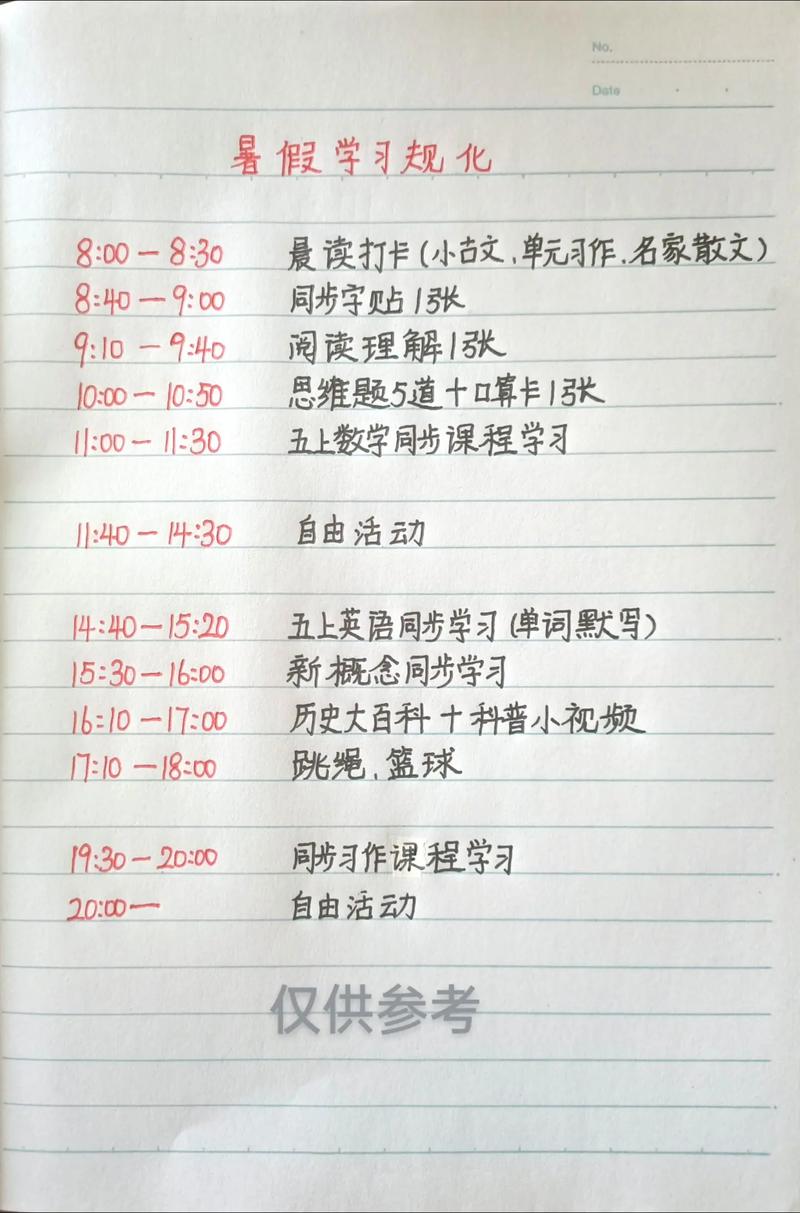 No.
Date
暑假学习规化
8:00 — 8:30 晨读打卡(小古文、单元习作、名家散文)
8:40 — 9:00 同步字贴1张
9:10 — 9:40 阅读理解1张
10:00 — 10:50 思维题5道+口算卡1张
11:00 — 11:30 五上数学同步课程学习
11:40 — 14:30 自由活动
14:40 — 15:20 五上英语同步学习(单词默写)
15:30 — 16:00 新概念同步学习
16:10 — 17:00 历史大百科+科普小视频
17:10 — 18:00 跳绳、篮球
19:30 — 20:00 同步习作课程学习
20:00 — 自由活动
仅供参考